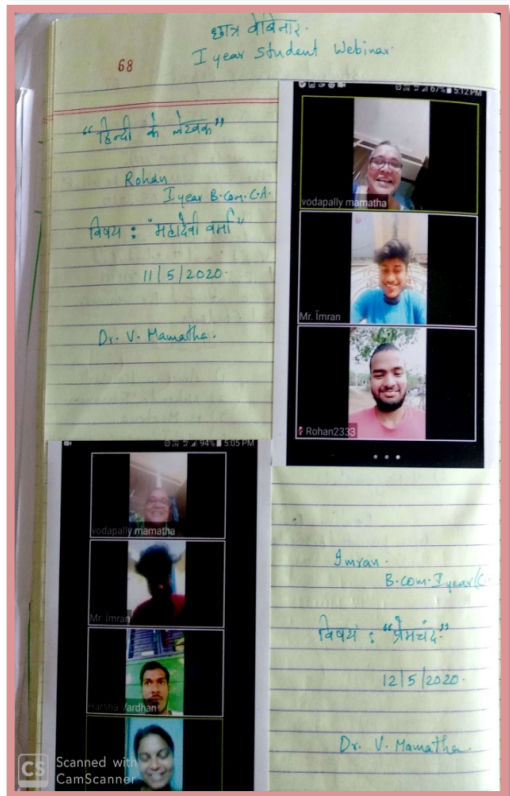 छात्र वेबिनार.
68
I year Student Webinar.
"हिन्दी के लेखक"
Rohan
I year B.Com. C.A.
विषय : "महादेवी वर्मा"
11/5/2020.
Dr. V. Mamatha.
67% 5:12 PM
vodapally mamatha
Mr. Imran
Rohan2333
94% 5:05 PM
vodapally mamatha
Mr. Imran
Vardhan
Imran.
B.Com. I year
विषय : "प्रेमचंद"
12/5/2020.
Dr. V. Mamatha.
CS Scanned with
CamScanner